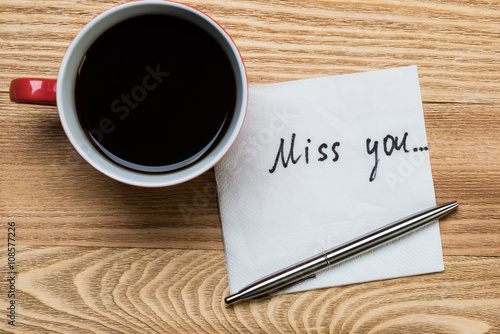 Miss you...
Adobe Stock | #108577226